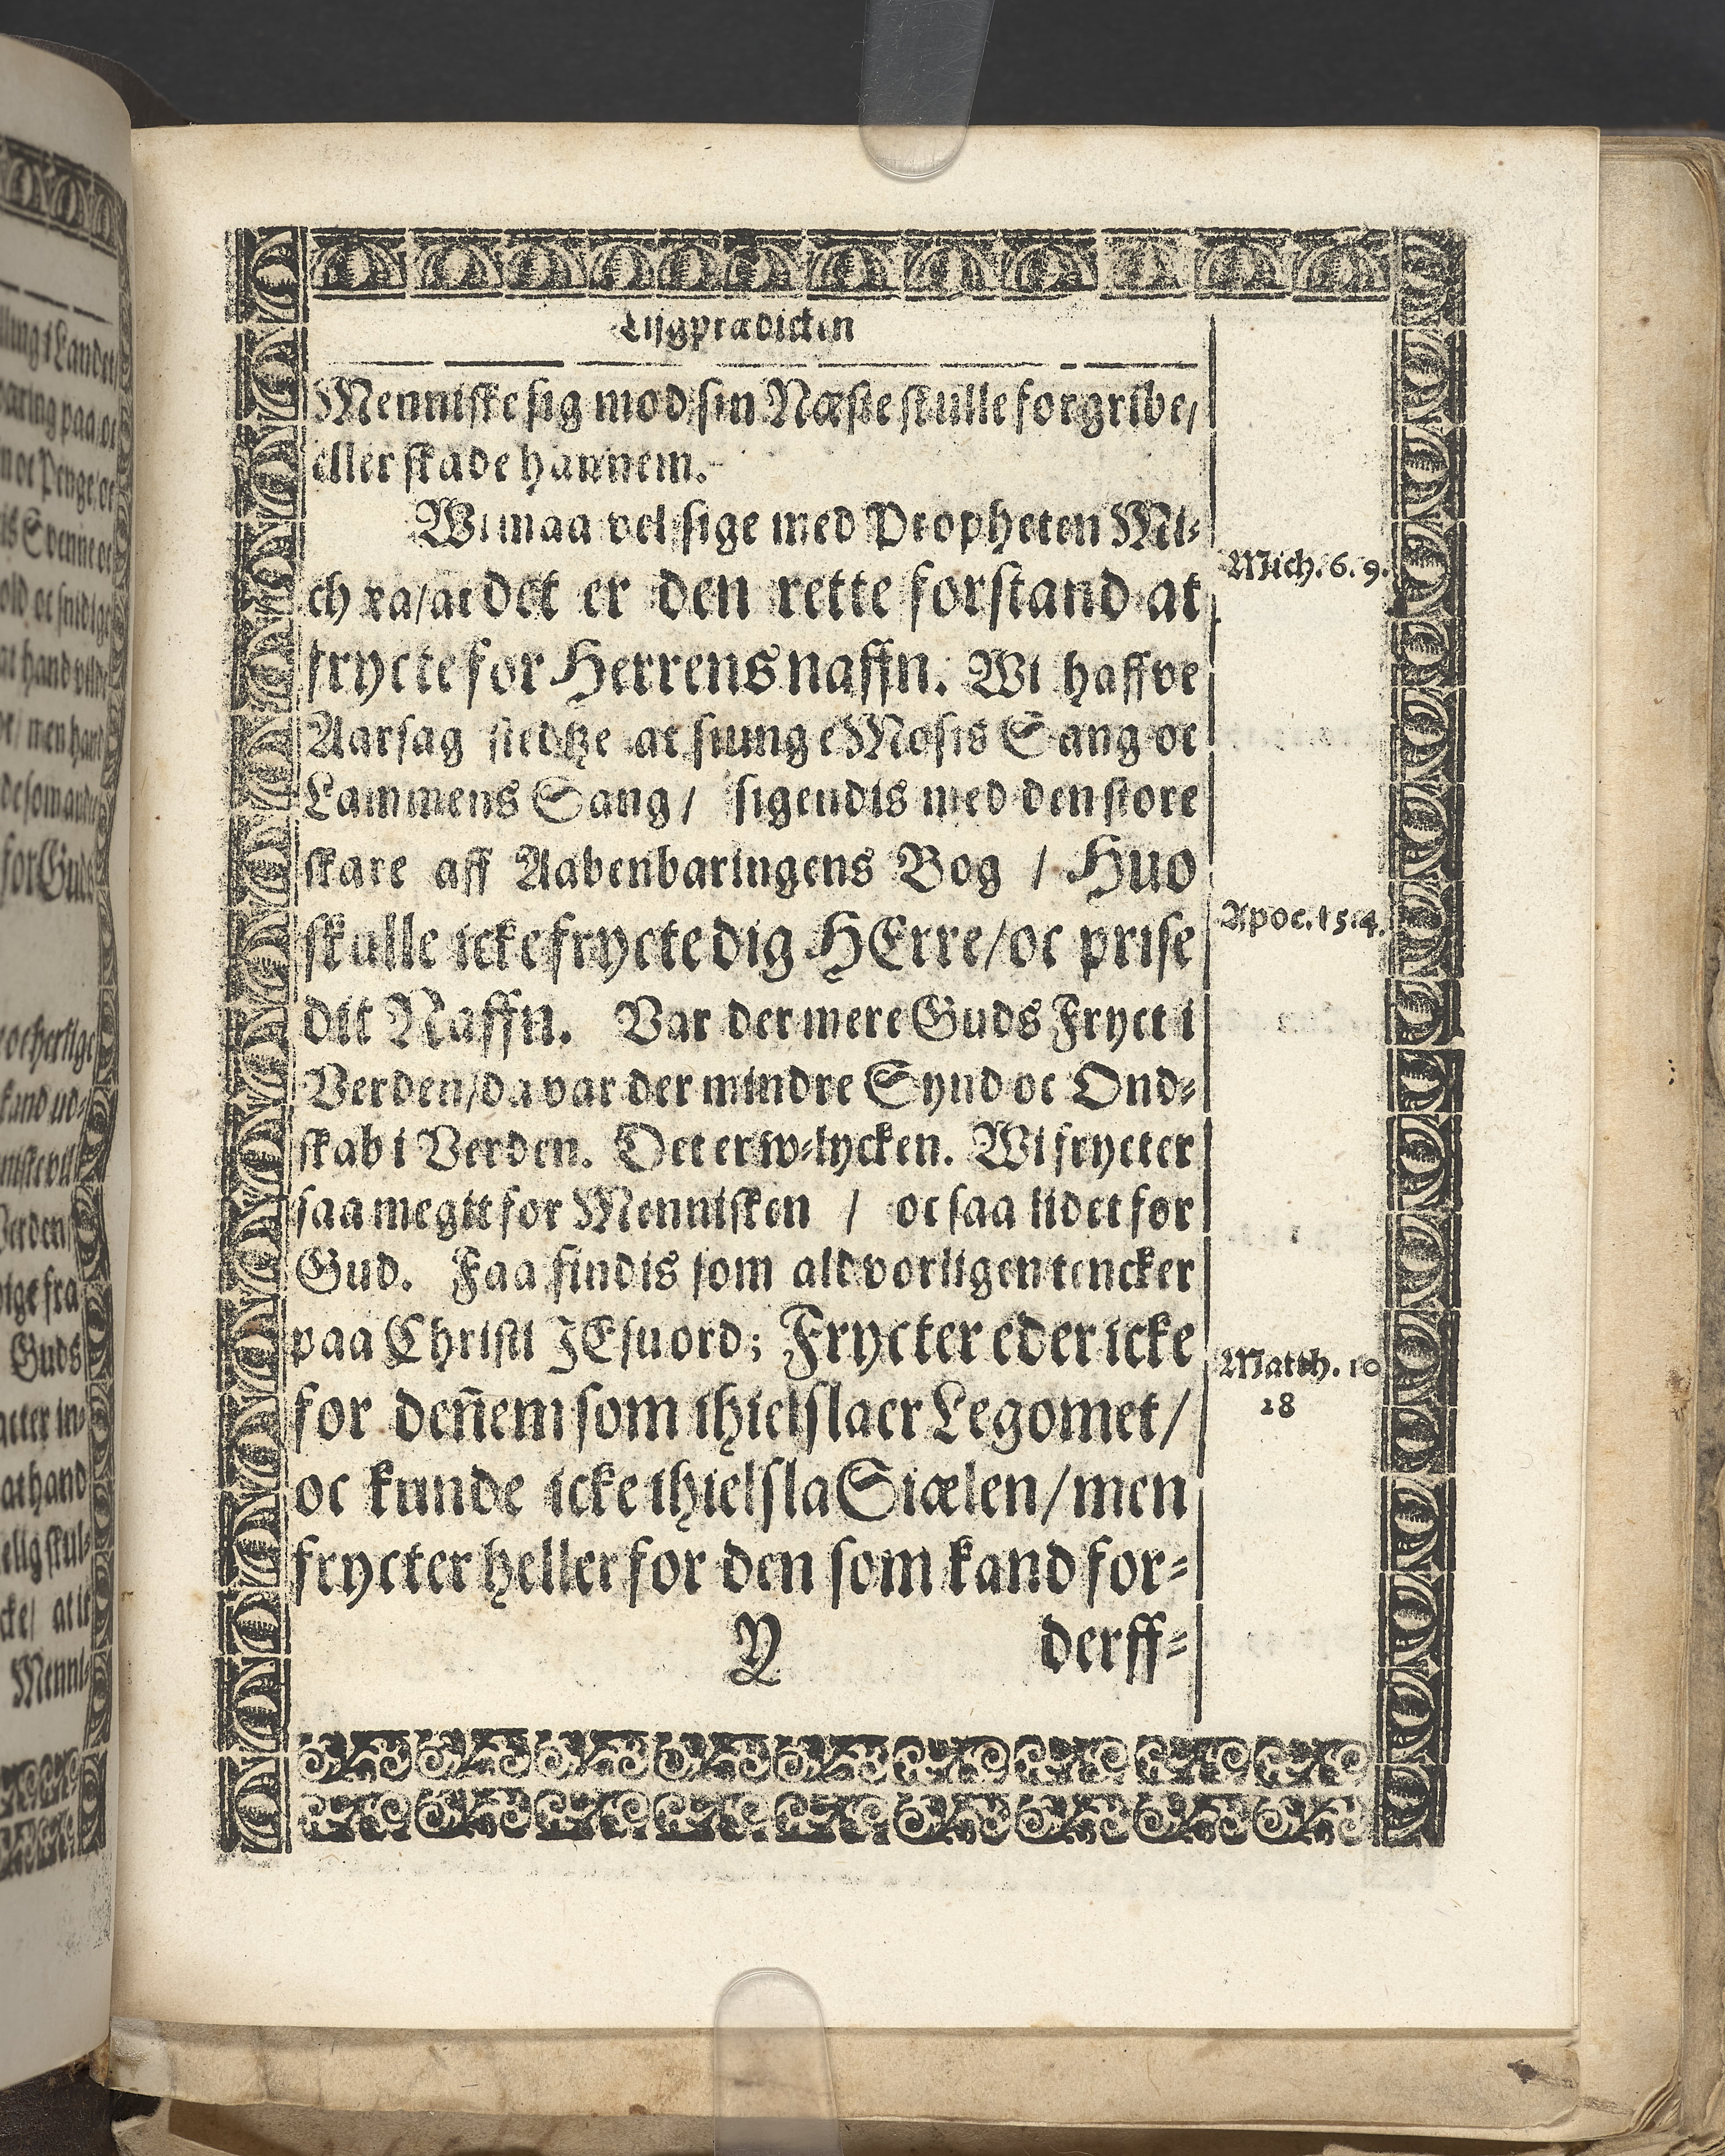 Lijgprædicken
Menniske sig mod sin Næste skulle forgribe/
eller skade hannem.
Wi maa vel sige med Propheten Mi-
chæa/at det er den rette forstand at
frycte for Herrens naffn. Wi haffve
Aarsag stedtze at siunge Mosis Sang oc
Lammens Sang/ sigendis med den store
skare aff Aabenbaringens Bog / Huo
skulle icke frycte dig HErre/oc prise
dit Naffn. Var der mere Guds Fryct i
Verden/da var der mindre Synd oc Ond-
skab i Verden. Det er w-lycken. Wi frycter
saa megit for Mennisken / oc saa lidet for
Gud. Faa findis som aldvorligen tencker
paa Christi JEsu ord; Frycter eder icke
for den̄em som ihielslaer Legomet/
oc kunde icke ihielsla Siælen/men
frycter heller for den som kand for-
Y derff-
Mich. 6. 9.
Apoc. 15.4.
Matth. 10
28